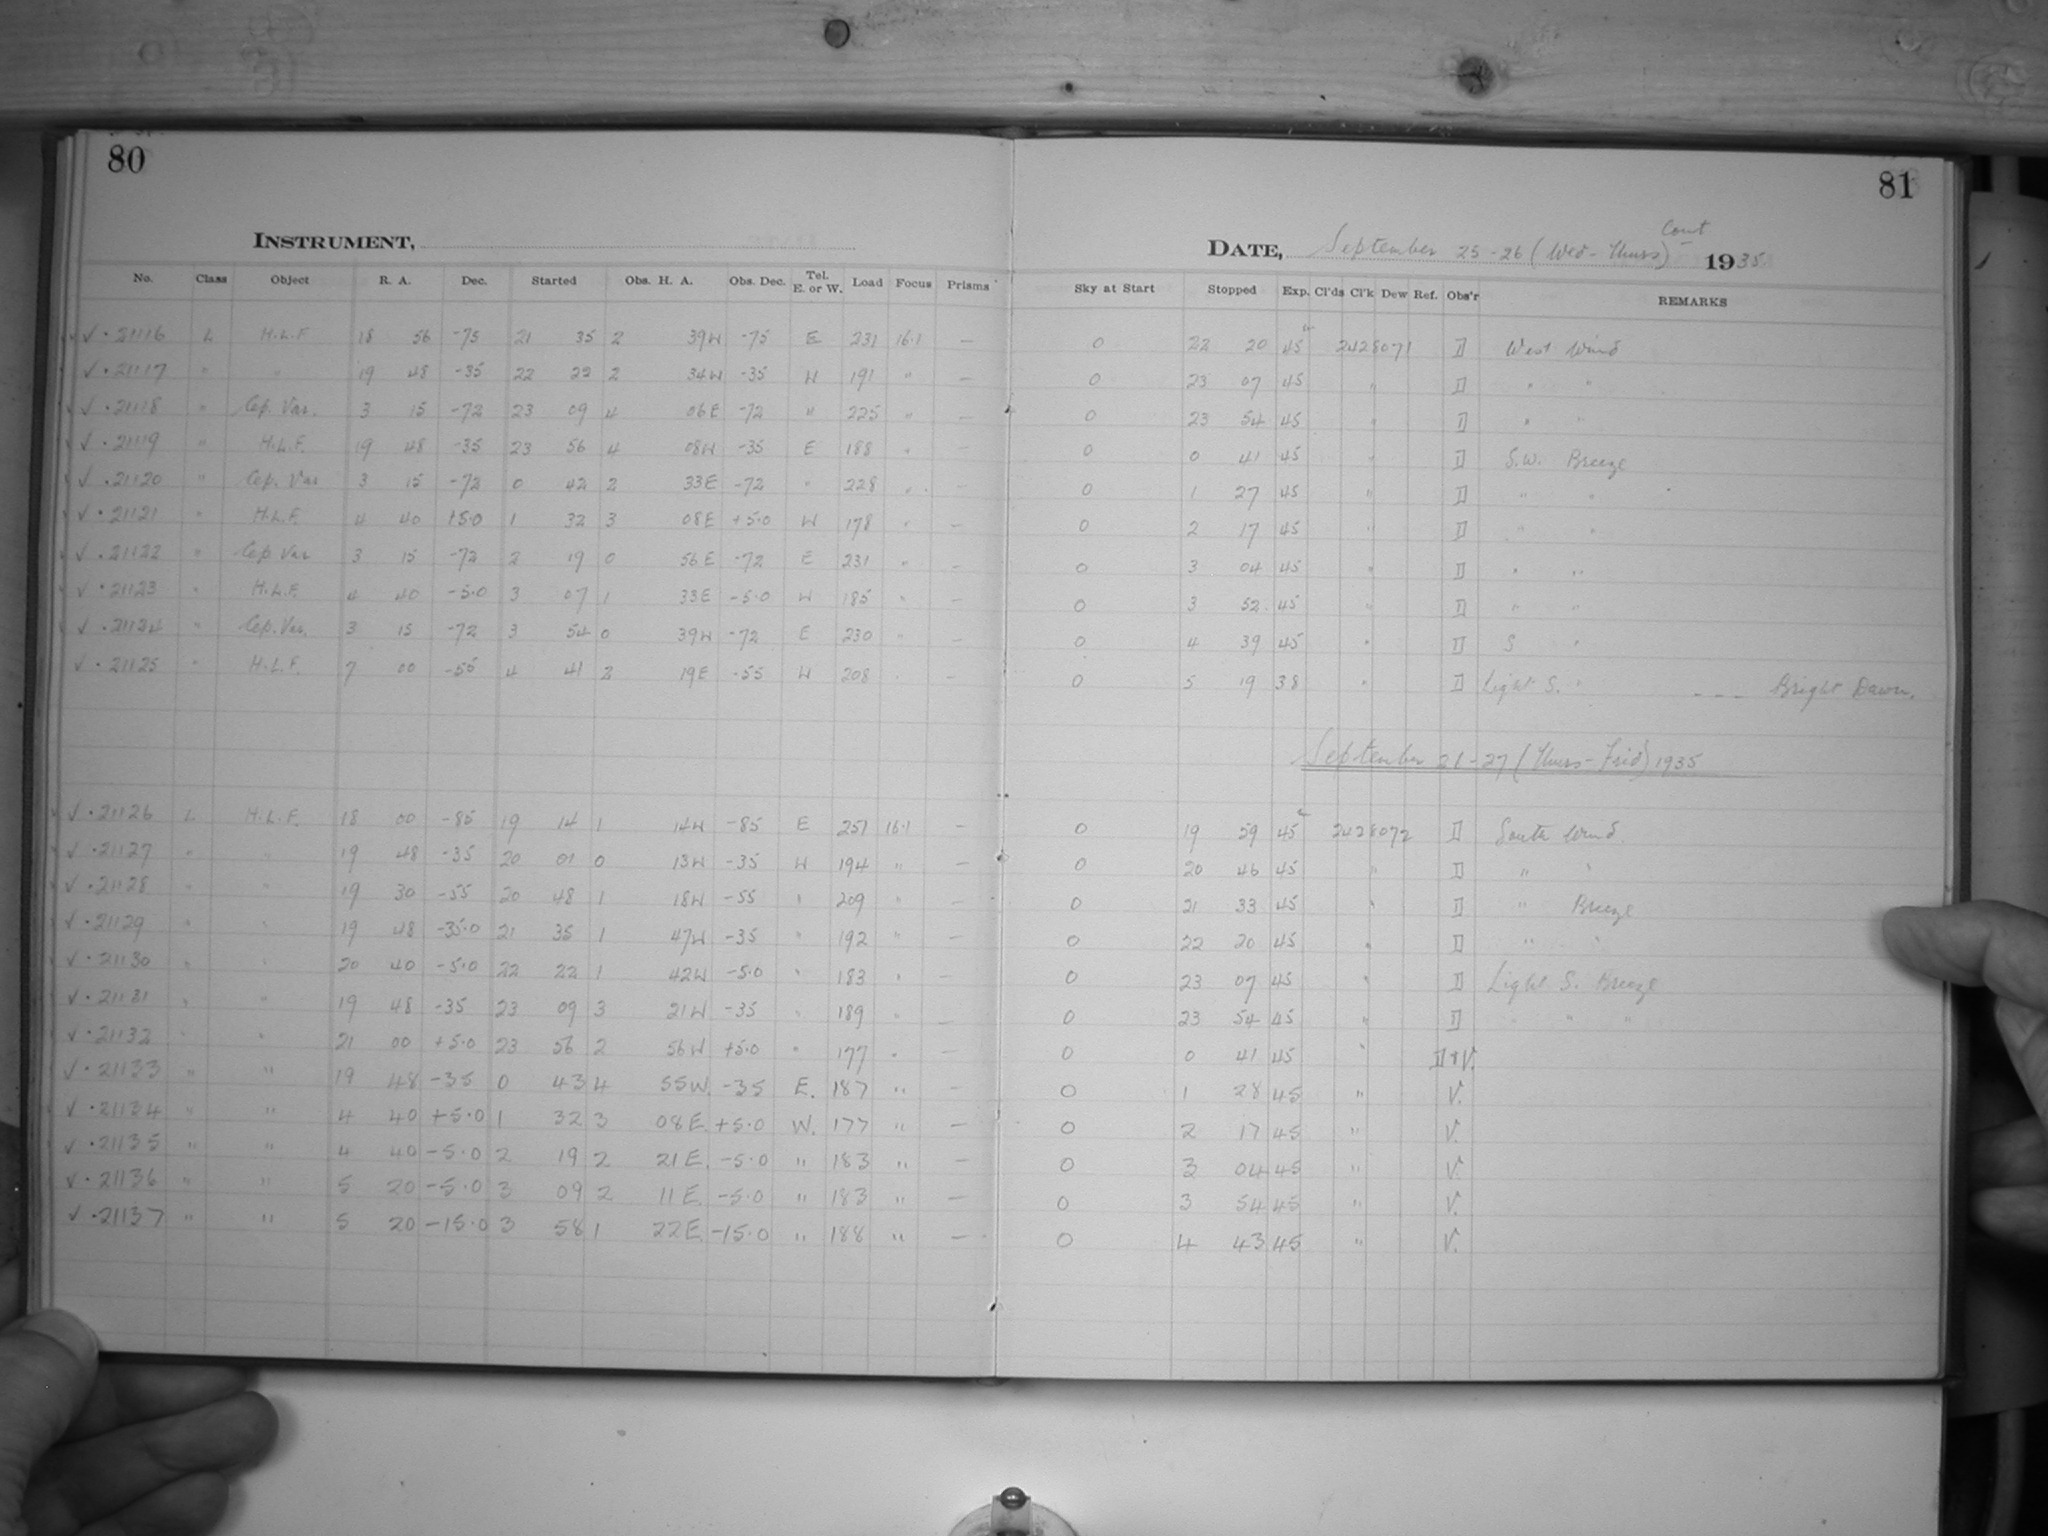 80
81
INSTRUMENT,
DATE, September 25-26 (Wed-Thurs) Cont 1935
No. Class Object R. A. Dec. Started Obs. H. A. Obs. Dec. Tel. E. or W. Load Focus Prisms Sky at Start Stopped Exp. Cl'ds Cl'k Dew Ref. Obs'r REMARKS
√ · 21116 L H.L.F. 18 56 -75 21 35 2 39W -75 E 231 16.1 — 0 22 20 45 2428071 D West Wind
√ · 21117 " " 19 48 -35 22 22 2 34W -35 W 191 " — 0 23 07 45 " D " "
√ · 21118 " Cep. Var. 3 15 -72 23 09 4 06E -72 " 225 " — 0 23 54 45 " D " "
√ · 21119 " H.L.F. 19 48 -35 23 56 4 08W -35 E 188 " — 0 0 41 45 " D S.W. Breeze
√ · 21120 " Cep. Var 3 15 -72 0 42 2 33E -72 " 228 " — 0 1 27 45 " D " "
√ · 21121 " H.L.F. 4 40 +5.0 1 32 3 08E +5.0 W 178 " — 0 2 17 45 " D " "
√ · 21122 " Cep Var 3 15 -72 2 19 0 56E -72 E 231 " — 0 3 04 45 " D " "
√ · 21123 " H.L.F. 4 40 -5.0 3 07 1 33E -5.0 W 185 " — 0 3 52 45 " D " "
√ · 21124 " Cep. Var. 3 15 -72 3 54 0 39W -72 E 230 " — 0 4 39 45 " D S "
√ · 21125 " H.L.F. 7 00 -55 4 41 2 19E -55 W 208 " — 0 5 19 38 " D Light S. " --- Bright Dawn.
September 26-27 (Thurs-Frid) 1935
√ · 21126 L H.L.F. 18 00 -85 19 14 1 14W -85 E 251 16.1 — 0 19 59 45 2428072 D South Wind.
√ · 21127 " " 19 48 -35 20 01 0 13W -35 W 194 " — 0 20 46 45 " D " "
√ · 21128 " " 19 30 -55 20 48 1 18W -55 " 209 " — 0 21 33 45 " D " Breeze
√ · 21129 " " 19 48 -35.0 21 35 1 47W -35 " 192 " — 0 22 20 45 " D " "
√ · 21130 " " 20 40 -5.0 22 22 1 42W -5.0 " 183 " — 0 23 07 45 " D Light S. Breeze
√ · 21131 " " 19 48 -35 23 09 3 21W -35 " 189 " — 0 23 54 45 " D " " "
√ · 21132 " " 21 00 +5.0 23 56 2 56W +5.0 " 177 " — 0 0 41 45 " D+V.
√ · 21133 " " 19 48 -35 0 43 4 55W. -35 E. 187 " — 0 1 28 45 " V.
√ · 21134 " " 4 40 +5.0 1 32 3 08E. +5.0 W. 177 " — 0 2 17 45 " V.
√ · 21135 " " 4 40 -5.0 2 19 2 21E. -5.0 " 183 " — 0 3 04 45 " V.
√ · 21136 " " 5 20 -5.0 3 09 2 11E. -5.0 " 183 " — 0 3 54 45 " V.
√ · 21137 " " 5 20 -15.0 3 58 1 22E. -15.0 " 188 " — 0 4 43 45 " V.